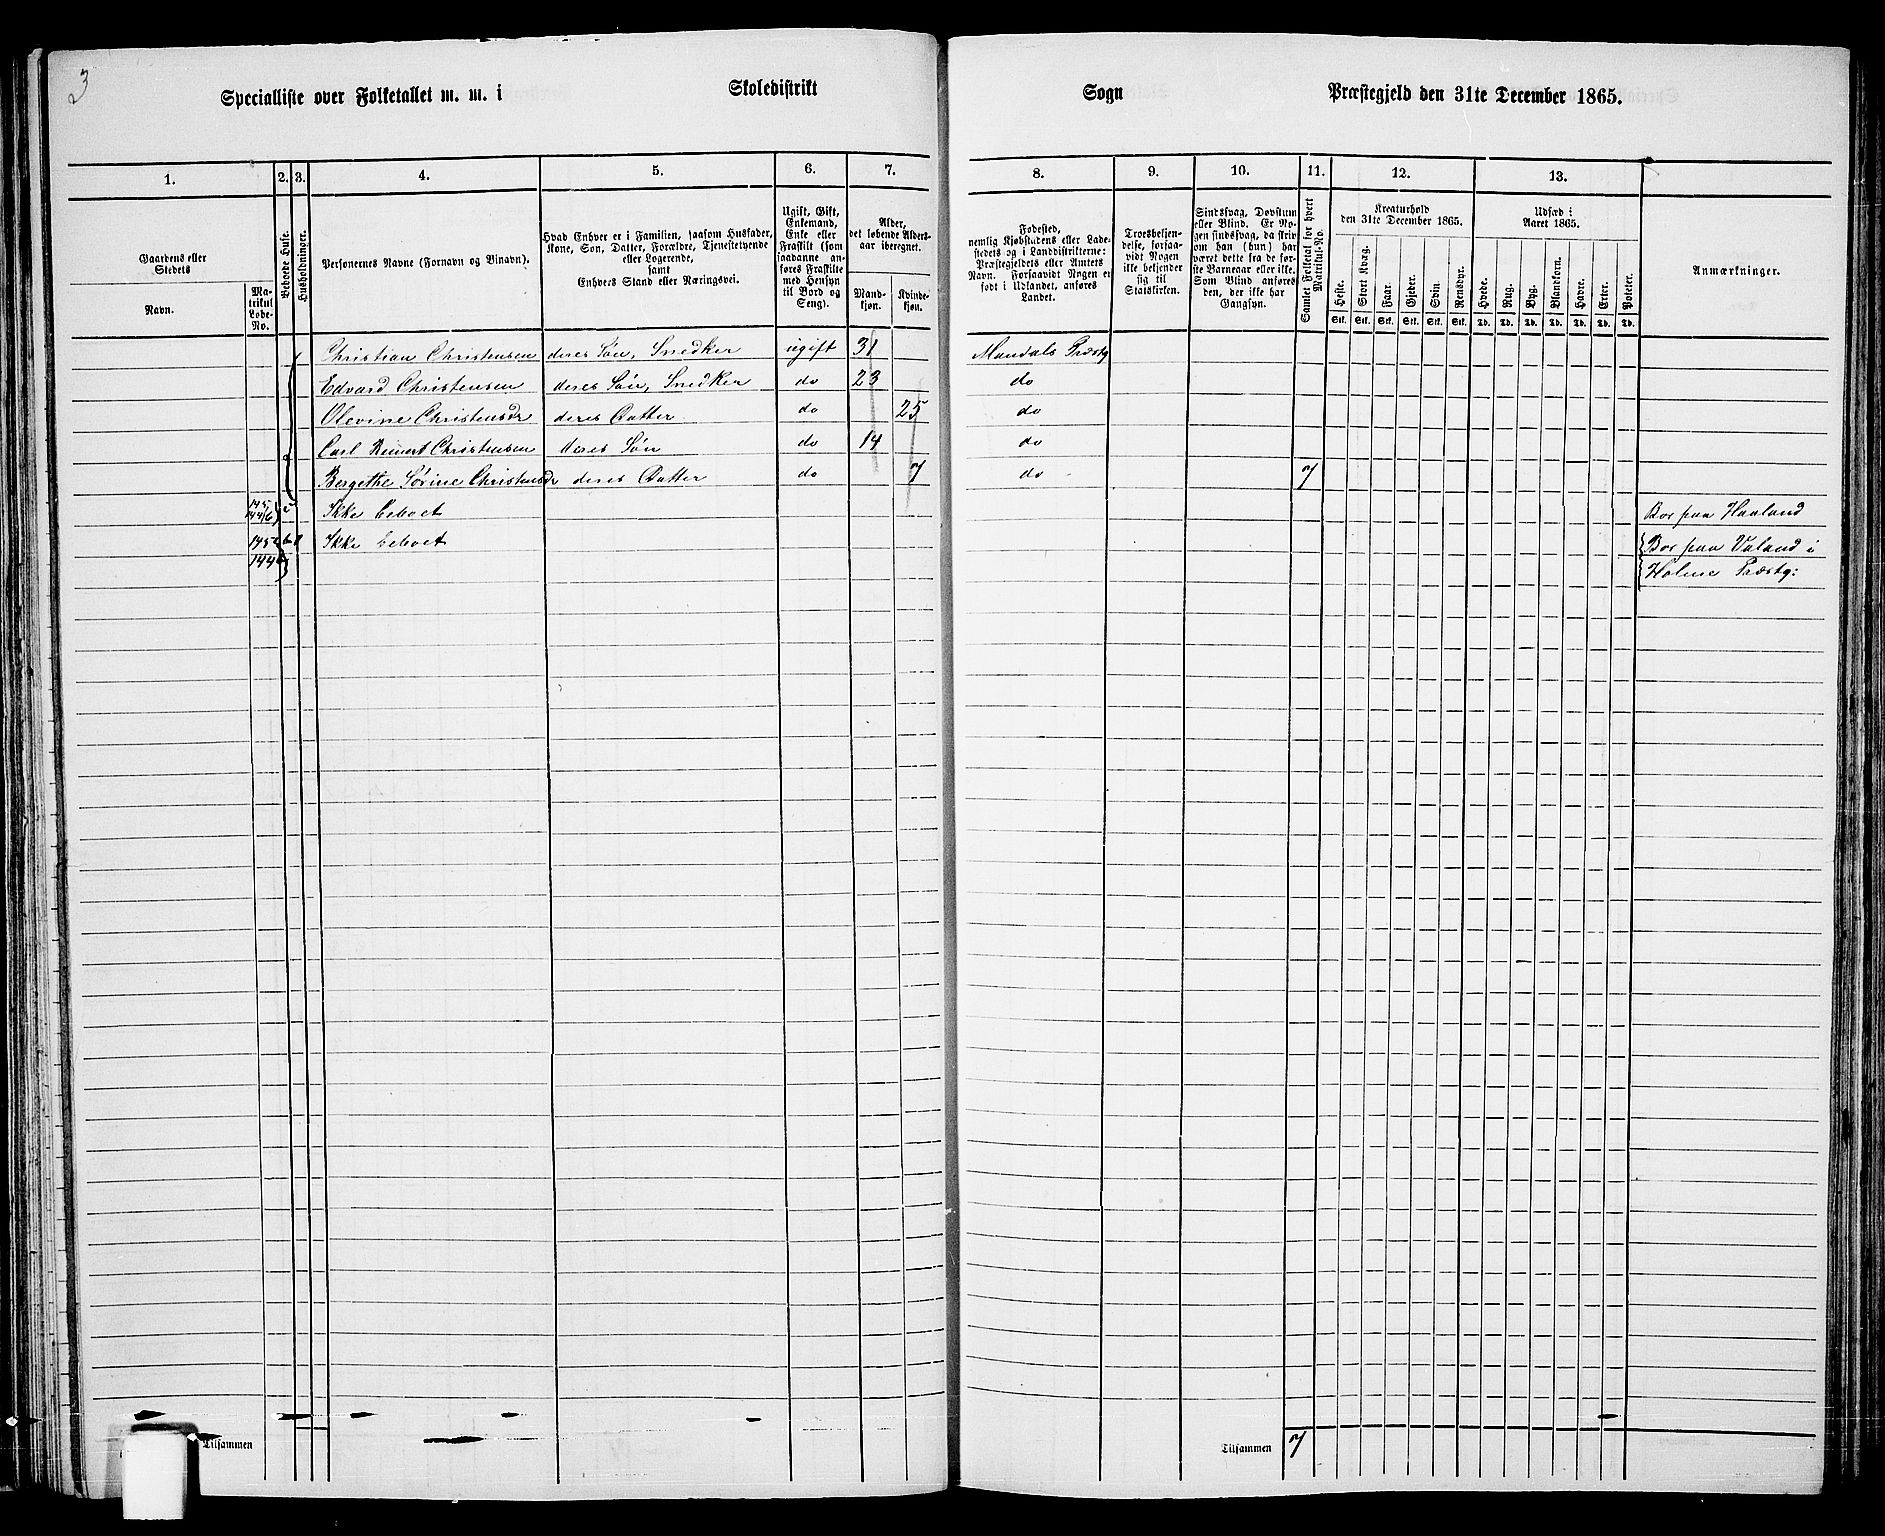 3
Specialliste over Folketallet m. m. i Skoledistrikt Sogn Præstegjeld den 31te December 1865.
1. 2. 3. 4. 5. 6. 7. 8. 9. 10. 11. 12. 13.
Gaardens eller Stedets
Navn.
Matrikul Løbe-No.
Beboede Huse.
Husholdninger.
Personernes Navne (Fornavn og Binavn).
Hvad Enhver er i Familien, saasom Husfader, Kone, Søn, Datter, Forældre, Tjenestetyende eller Logerende, samt Enhvers Stand eller Næringsvei.
Ugift, Gift, Enkemand, Enke eller Fraskilt (som saadanne anføres Fraskilte med Hensyn til Bord og Seng).
Alder, det løbende Alders-aar iberegnet.
Mand-kjøn.
Kvinde-kjøn.
Fødested, nemlig Kjøbstadens eller Ladestedets og i Landdistrikterne: Præstegjeldets eller Amtets Navn. Forsaavidt Nogen er født i Udlandet, anføres Landet.
Troesbekjendelse, forsaavidt Nogen ikke bekjender sig til Statskirken.
Sindssvag, Døvstum eller Blind. Er Nogen sindssvag, da skrives om han (hun) har været dette fra de første Barneaar eller ikke. Som Blind anføres den, der ikke har Gangsyn.
Samlet Folketal for hvert Matrikul-No.
Kreaturhold den 31te December 1865.
Heste. Stort Kvæg. Faar. Gjeder. Svin. Rensdyr.
Stk. Stk. Stk. Stk. Stk. Stk.
Udsæd i Aaret 1865.
Hvede. Rug. Byg. Blandkorn. Havre. Erter. Poteter.
Td. Td. Td. Td. Td. Td. Td.
Anmærkninger.
Christian Christensen deres Søn, Snedker ugift 31 Mandals Præstg
Edvard Christensen deres Søn, Snedker do 23 do
Olevine Christensdr deres Datter do 25 do
Carl Reinert Christensen deres Søn do 14 do
Bergethe Sørine Christensdr deres Datter do 7 do 7
Ikke beboet Bor paa Haaland
Ikke beboet Bor paa Valand i
Holme Præstg:
Tilsammen Tilsammen 7